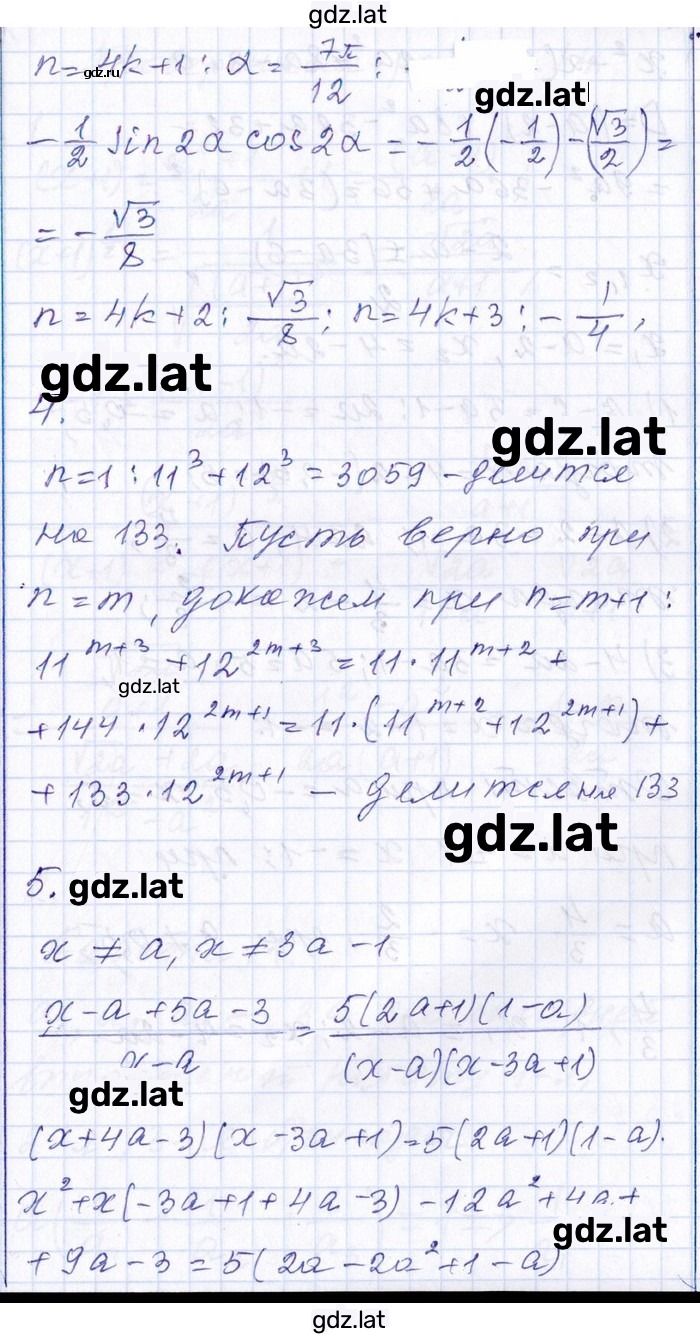 gdz.lat
n=4k+1: α = 7π/12 :
gdz.ru
gdz.lat
-1/2 sin 2α cos 2α = -1/2(-1/2)-(√3/2)=
= -√3/8
n=4k+2: √3/8; n=4k+3: -1/4,
gdz.lat
4.
gdz.lat
n=1: 11³+12³=3059 - делится
на 133. Пусть верно при
n=m, докажем при n=m+1:
11^(m+3) + 12^(2m+3) = 11·11^(m+2) +
gdz.lat
+144·12^(2m+1) = 11·(11^(m+2)+12^(2m+1))+
+133·12^(2m+1) - делится на 133
gdz.lat
5.
gdz.lat
x ≠ a, x ≠ 3a -1
(x-a+5a-3)/(x-a) = 5(2a+1)(1-a)/((x-a)(x-3a+1))
gdz.lat
(x+4a-3)(x-3a+1)=5(2a+1)(1-a).
x²+x(-3a+1+4a-3)-12a²+4a+
gdz.lat
+9a-3=5(2a-2a²+1-a)
gdz.lat